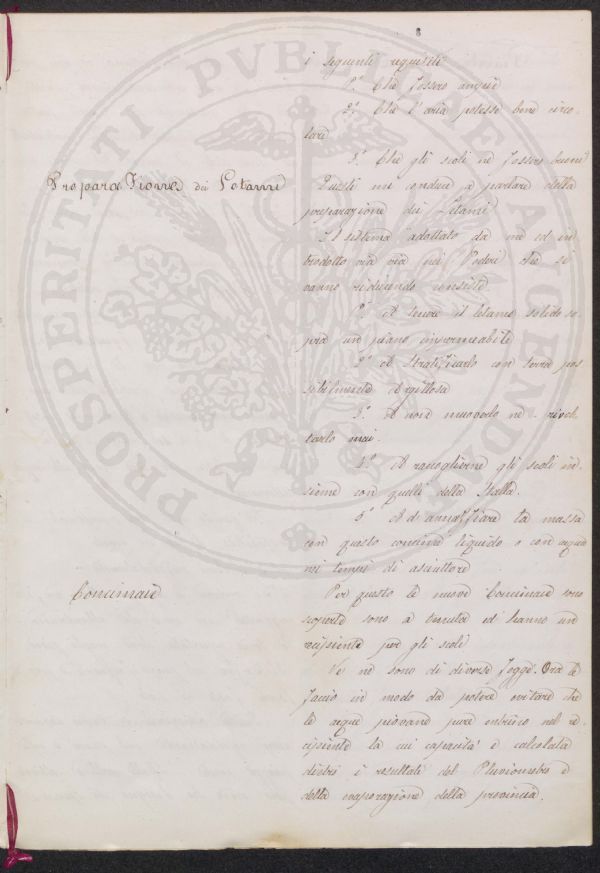 8
i seguenti requisiti
1.º Che fossero ampie
2.º Che l'aria potesse bene circo-
lare
3.º Che gli scoli ne fossero buoni
Preparazione dei Letami
Questi mi conduce a parlare della
preparazione dei Letami
Il sistema adottato da me ed in-
trodotto via via nei Poderi che si
vanno riducendo consiste
1.º A tenere il letame solido so-
pra un piano impermeabile
2.º A Stratificarlo con terra pos-
sibilmente Argillosa
3.º A non muoverlo nè rivol-
tarlo mai.
4.º A raccoglierne gli scoli in-
sieme con quelli della Stalla.
5.º A d'annaffiare la massa
con questo concime liquido o con acqua
nei tempi di asciuttore
Concimaie
Per questo le nuove Concimaie sono
scoperte sono a tenuta ed hanno un
recipiente per gli scoli
Ve ne sono di diverse fogge. Ora le
faccio in modo da potere evitare che
le acque piovane pure entrino nel re-
cipiente la cui capacità è calcolata
dietro i resultati del Pluviometro e
della evaporazione della provincia.
PROSPERITATI PUBLICAE AUGENDAE